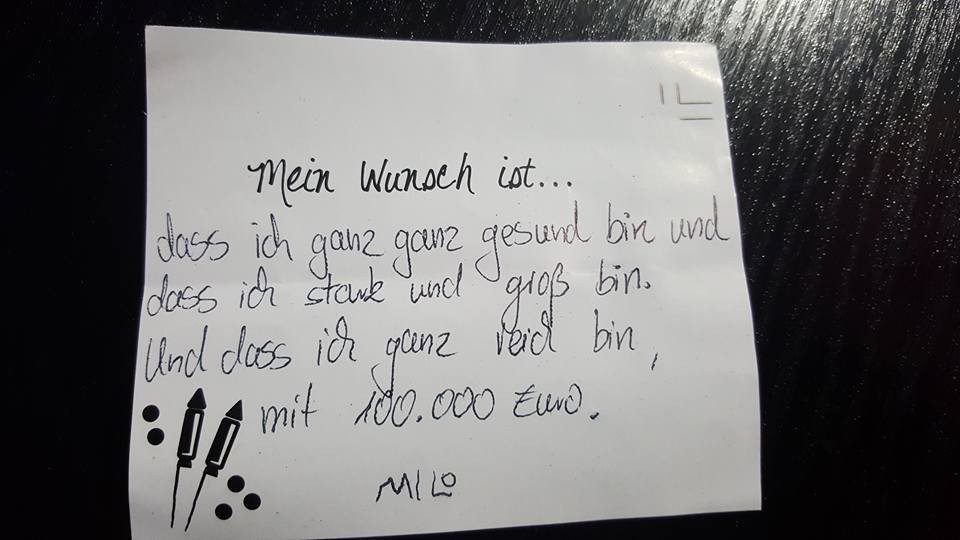 Mein Wunsch ist...
dass ich ganz ganz gesund bin und
dass ich stark und groß bin.
Und dass ich ganz reich bin,
mit 100.000 Euro.
MILO